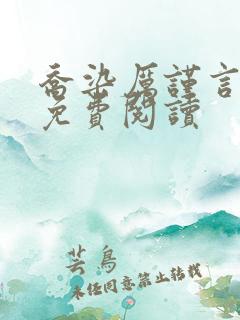 喬染厲謹言
免費閱讀
芸鳥
未經同意禁止轉載